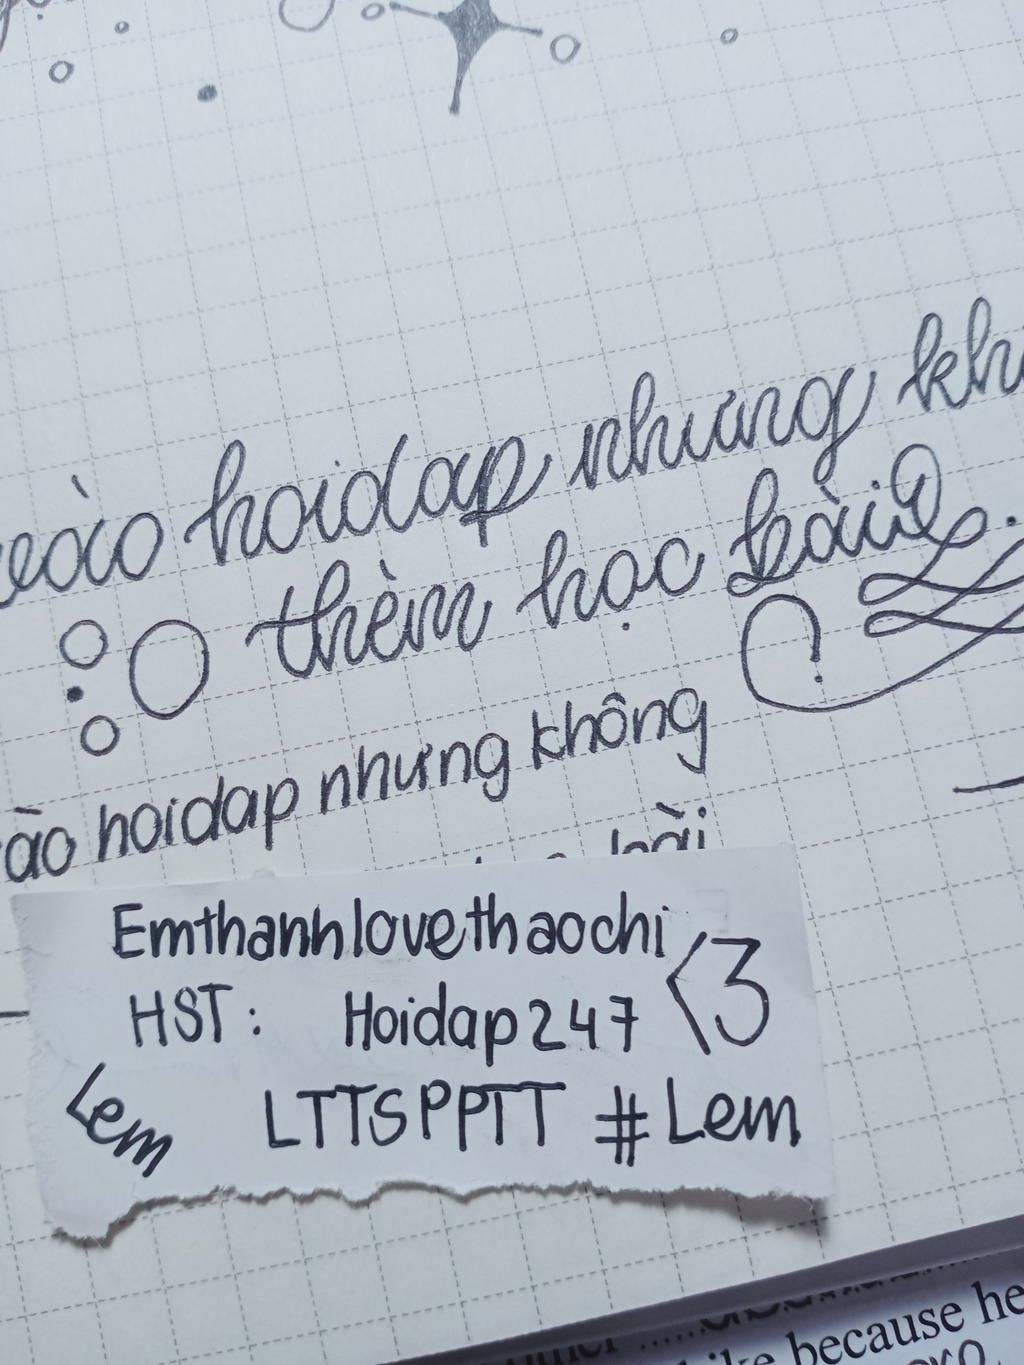 vào hoidap nhưng
thèm học bài
vào hoidap nhưng không
bài
Emthanhlovethaochi
HST: Hoidap247 <3
Lem LTTSPPTT #Lem
because he